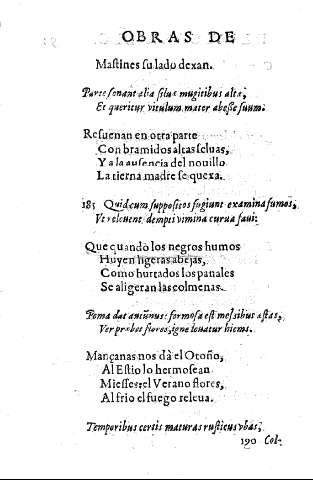 OBRAS DE
Mastines su lado dexan.
Parte sonant alia siluæ mugitibus altæ,
Et queritur vitulum mater abesse suum.
Resuenan en otra parte
Con bramidos altas seluas,
Y a la ausencia del nouillo
La tierna madre se quexa.
185 Quid cum suppositos fugiunt examina fumos,
Vt releuent dempti vimina curua faui:
Que quando los negros humos
Huyen ligeras abejas,
Como hurtados los panales
Se aligeran las colmenas.
Poma dat autũnus: formosa est messibus æstas,
Ver præbet flores, igne leuatur hiems.
Mançanas nos dà el Otoño,
Al Estio lo hermosean
Miesses, el Verano flores,
Al frio el fuego releua.
Temporibus certis maturas rusticus vbas,
190 Col-